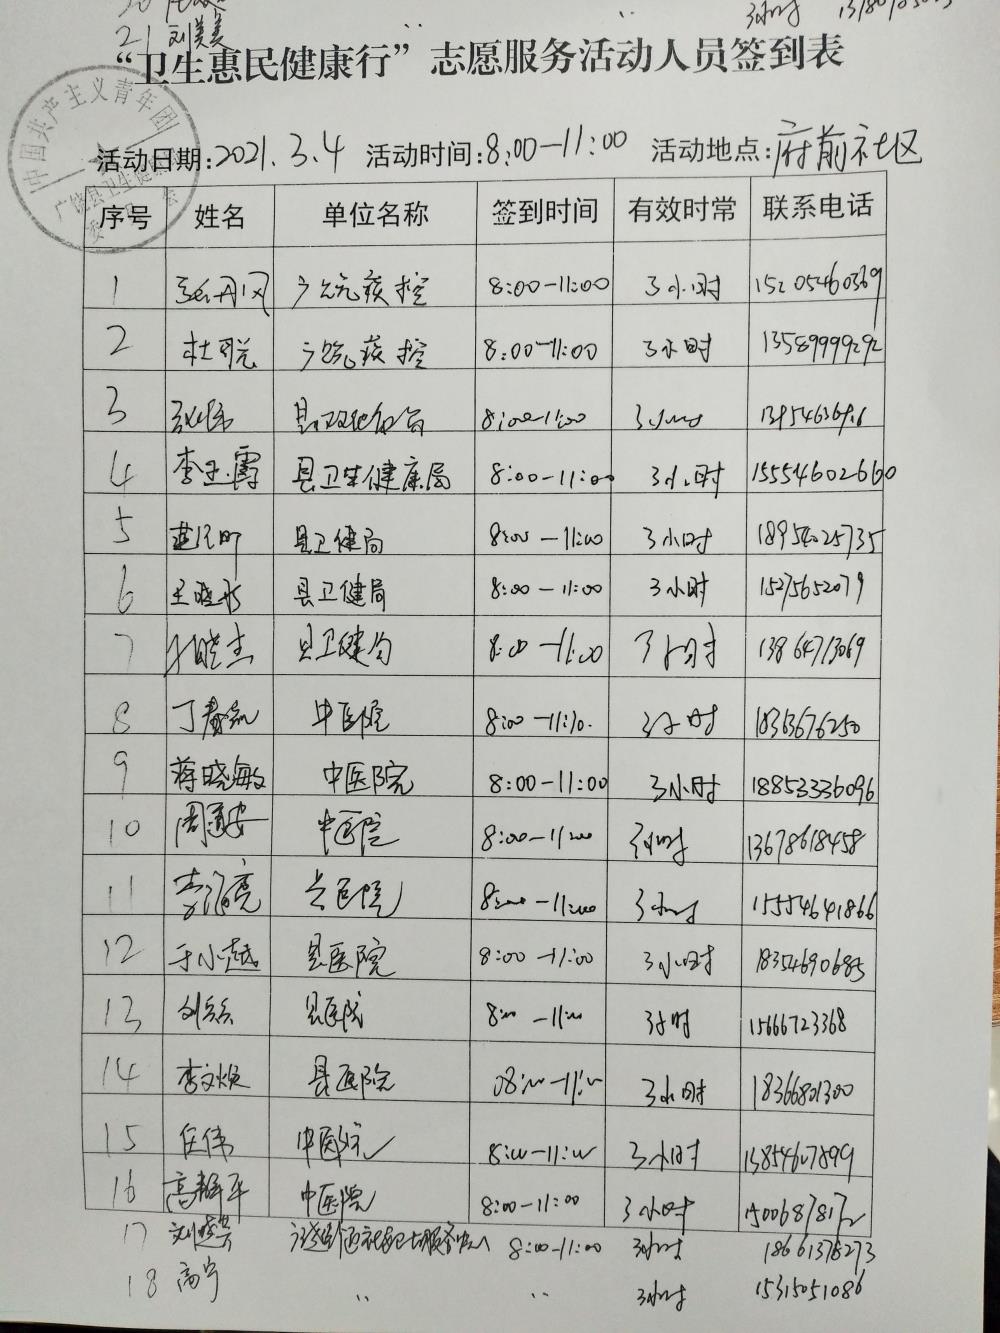 21 刘美美
3小时
“卫生惠民健康行”志愿服务活动人员签到表
中国共产主义青年团
广饶县卫生健康局
委员会
活动日期:2021.3.4 活动时间:8:00—11:00 活动地点:府前社区
序号 姓名 单位名称 签到时间 有效时常 联系电话
1 张丹凤 广饶疾控 8:00—11:00 3小时 15205460369
2 杜 广饶疾控 8:00—11:00 3小时 13589999292
3 张伟 8:00—11:00 3小时
4 李玉霞 县卫生健康局 8:00—11:00 3小时 15554602660
5 县卫健局 8:00—11:00 3小时 18954025735
6 王晓彤 县卫健局 8:00—11:00 3小时 15275652079
7 晓杰 县卫健局 8:00—11:00 3小时 13864713069
8 丁春 中医院 8:00—11:00 3小时 18353676250
9 蒋晓敏 中医院 8:00—11:00 3小时 18853336096
10 周通安 中医院 8:00—11:00 3小时 13678618458
11 李海亮 县医院 8:00—11:00 3小时 15554641866
12 于小越 县医院 8:00—11:00 3小时 18354690685
13 刘兵兵 县医院 8:00—11:00 3小时 15666723368
14 李文焕 县医院 08:00—11:00 3小时 18366801300
15 任伟 中医院 8:00—11:00 3小时 13854607899
16 高静平 中医院 8:00—11:00 3小时
17 刘 8:00—11:00 3小时 18661378273
18 高宁 〃 〃 3小时 15315051086